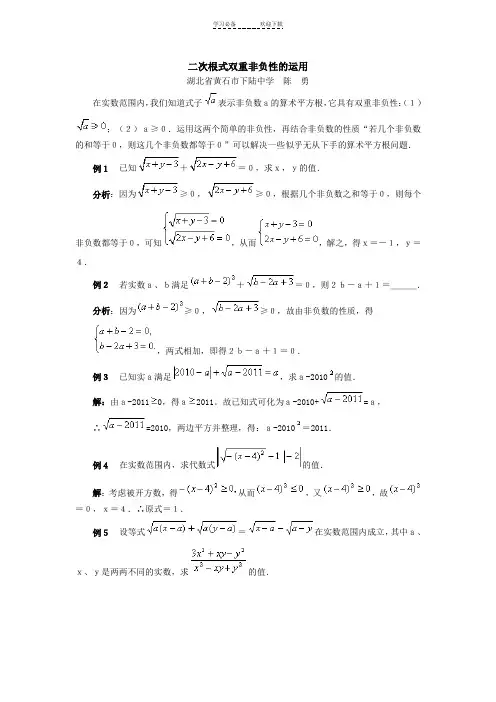 学习必备 欢迎下载
二次根式双重非负性的运用
湖北省黄石市下陆中学 陈 勇
在实数范围内,我们知道式子√a表示非负数a的算术平方根,它具有双重非负性:(1)
√a≥0;(2)a≥0.运用这两个简单的非负性,再结合非负数的性质“若几个非负数
的和等于0,则这几个非负数都等于0”可以解决一些似乎无从下手的算术平方根问题.
例1 已知√(x+y-3)+√(2x-y+6)=0,求x,y的值.
分析:因为√(x+y-3)≥0,√(2x-y+6)≥0,根据几个非负数之和等于0,则每个
非负数都等于0,可知{√(x+y-3)=0 √(2x-y+6)=0,从而{x+y-3=0 2x-y+6=0,解之,得x=-1,y=
4.
例2 若实数a、b满足(a+b-2)²+√(b-2a+3)=0,则2b-a+1=______.
分析:因为(a+b-2)²≥0,√(b-2a+3)≥0,故由非负数的性质,得
{a+b-2=0, b-2a+3=0.,两式相加,即得2b-a+1=0.
例3 已知实a满足|2010-a|+√(a-2011)=a,求a-2010²的值.
解:由a-2011≥0,得a≥2011。故已知式可化为a-2010+√(a-2011)=a,
∴√(a-2011)=2010,两边平方并整理,得:a-2010²=2011.
例4 在实数范围内,求代数式|√(-(x-4)²)-1|-2|的值.
解:考虑被开方数,得-(x-4)²≥0,从而(x-4)²≤0,又(x-4)²≥0,故(x-4)²
=0,x=4.∴原式=1.
例5 设等式√(a(x-a))+√(a(y-a))=√(x-a)-√(a-y)在实数范围内成立,其中a、
x、y是两两不同的实数,求(3x²+xy-y²)/(x²-xy+y²)的值.